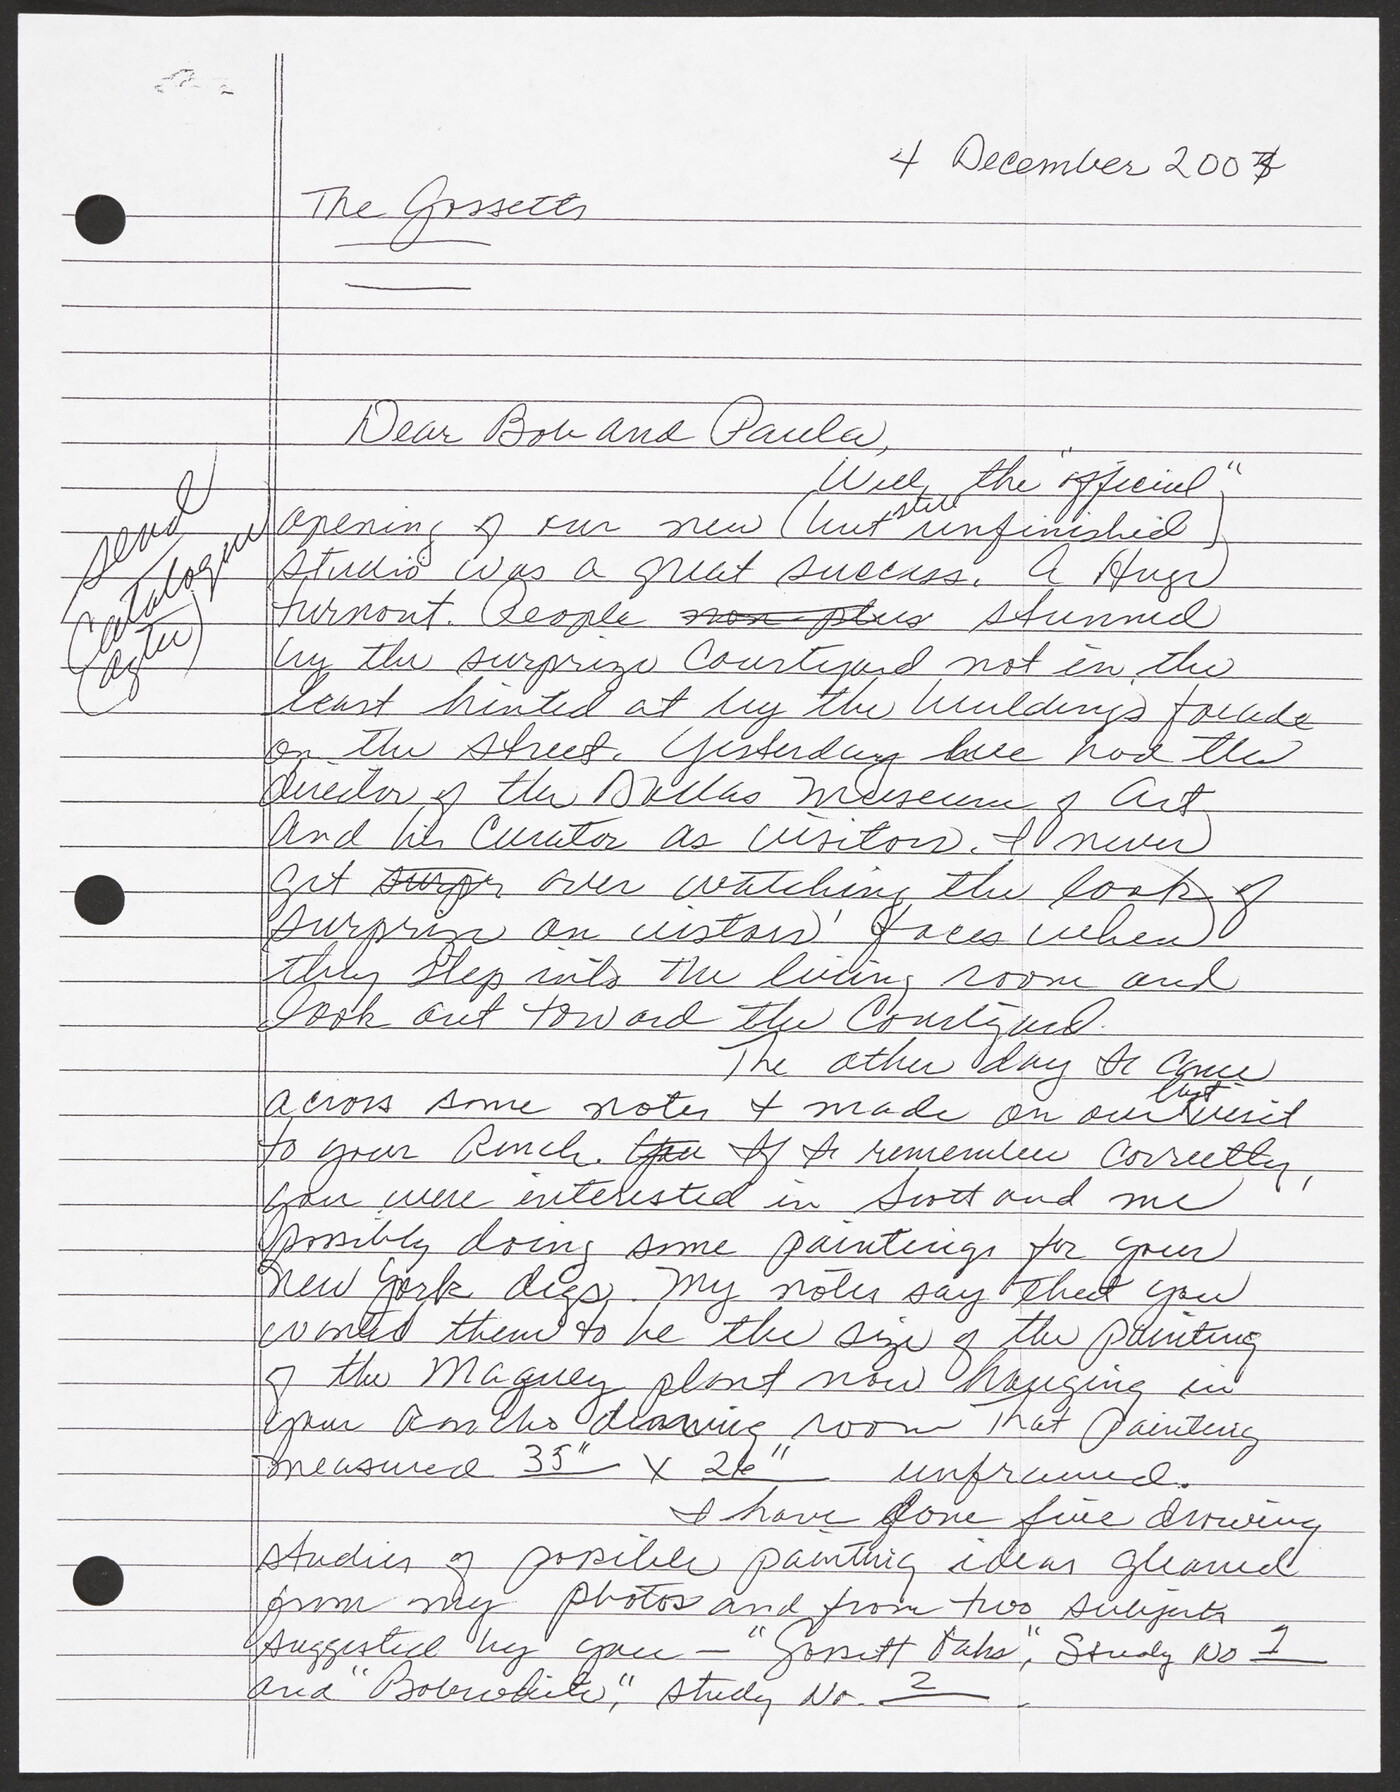 4 December 2003
The Gossetts
Dear Bob and Paula,
Well, the "official"
opening of our new (but still unfinished)
studio was a great success. A Huge
turnout. People non plus stunned
by the surprize Courtyard not in the
least hinted at by the building's facade
on the street. Yesterday we had the
director of the Dallas Museum of Art
and his Curator as visitors. I never
get surpr over watching the look of
surprize on vistors' faces when
they step into the living room and
look out toward the Courtyard.
The other day I came
across some notes I made on our last visit
to your Ranch. You If I remember correctly,
you were interested in Scott and me
possibly doing some paintings for your
New York digs. My notes say that you
wanted them to be the size of the painting
of the Maguey plant now hanging in
your Rancho dinning room That painting
measured 35" X 26" unframed.
I have done five drawing
studies of possible painting ideas gleaned
from my photos and from two subjects
suggested by you — "Gossett Oaks", Study No 1
and "Bobwhite," Study No. 2.
send
Catalogue
(after)